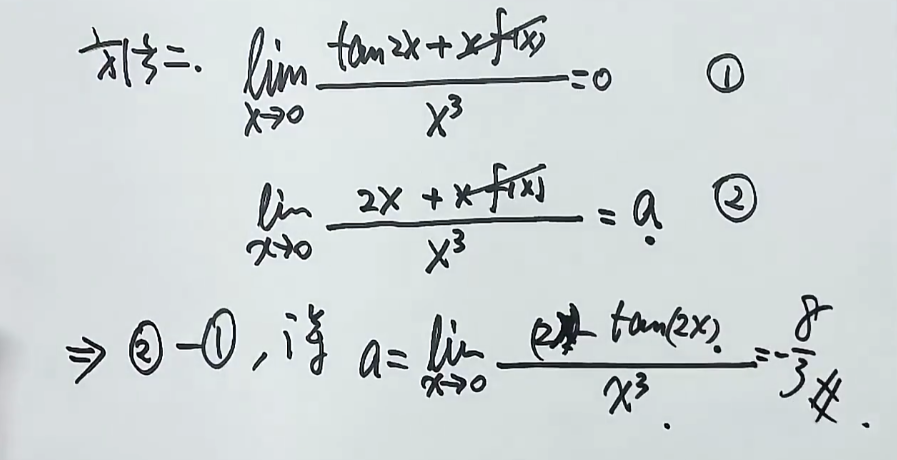 方法二. lim x→0 (tan2x + xf(x))/x³ = 0 ①
lim x→0 (2x + xf(x))/x³ = a ②
⇒ ② - ①, 得 a = lim x→0 ((2x) - tan(2x))/x³ = -8/3 #.